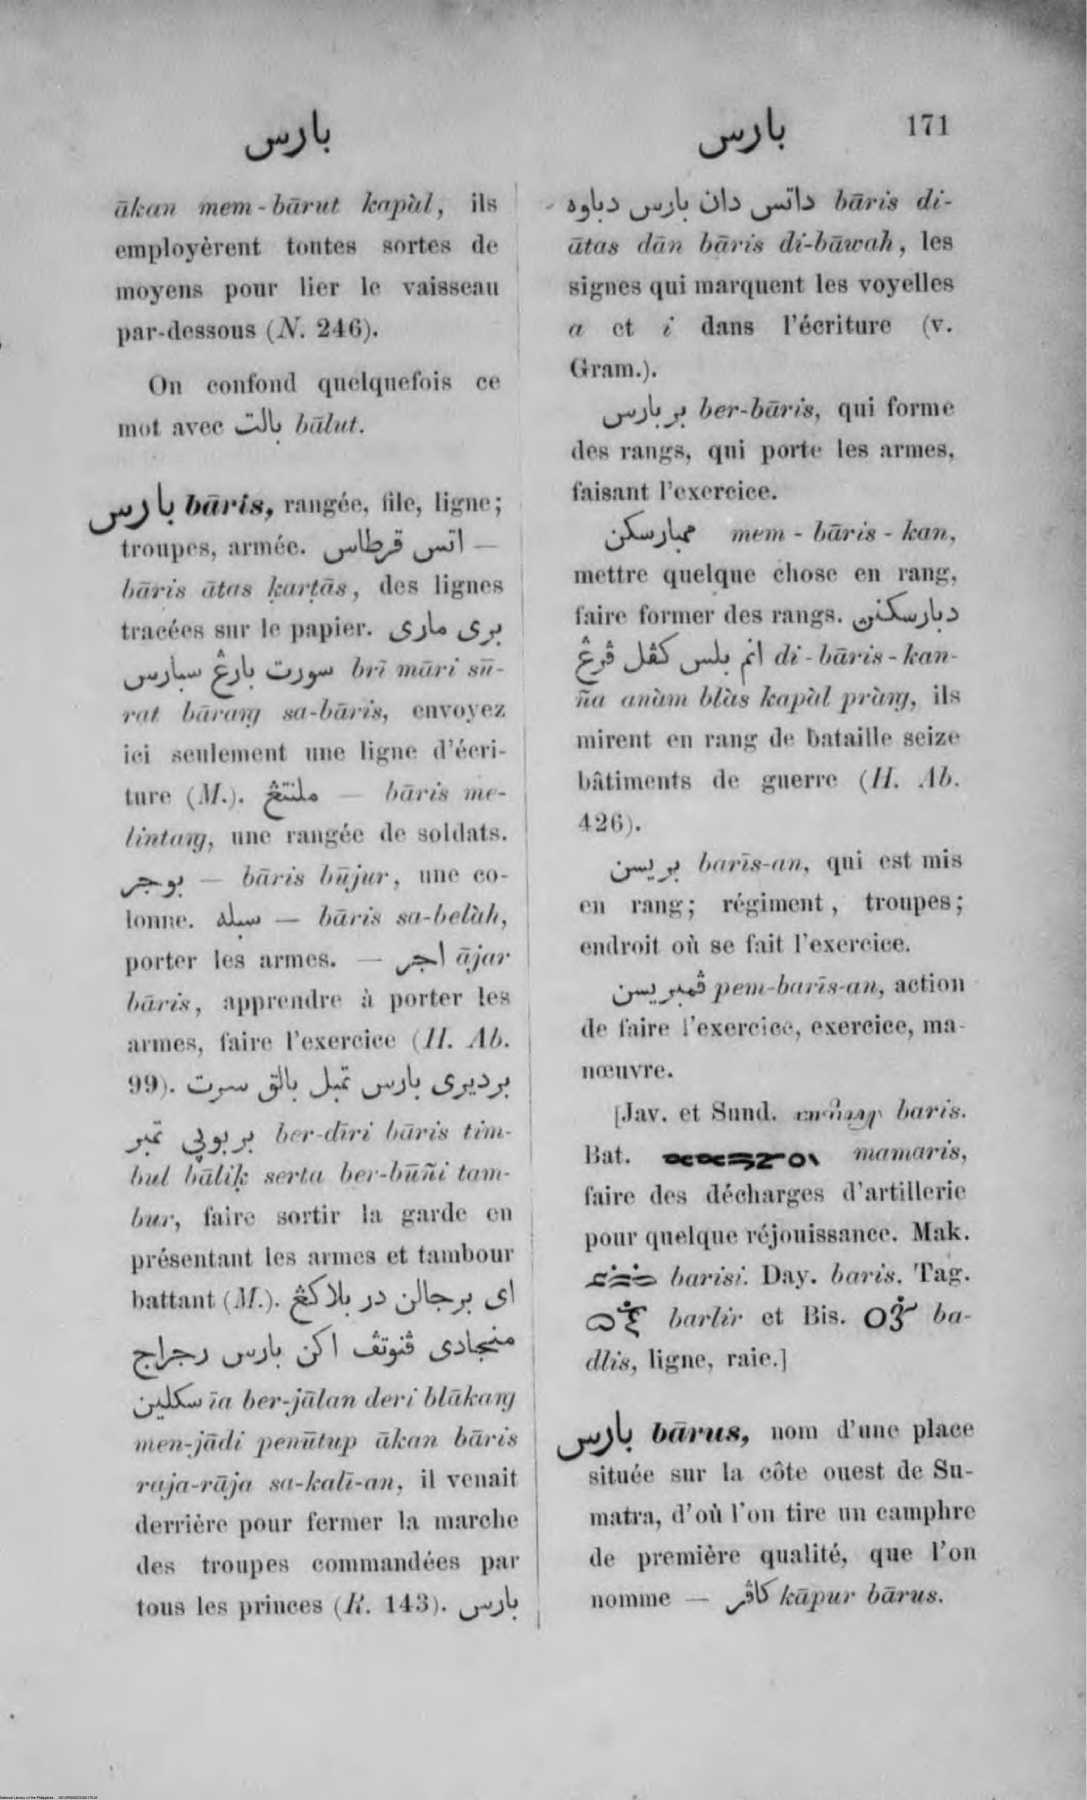 بارس
بارس 171
ākan mem-bārut kapàl, ils
employèrent toutes sortes de
moyens pour lier le vaisseau
par-dessous (N. 246).
On confond quelquefois ce
mot avec بالت bālut.
بارس bāris, rangée, file, ligne;
troupes, armée. اتس قرطاس —
bāris ātas ḳarṭās, des lignes
tracées sur le papier. بري ماري
سورت بارڠ سبارس brī māri sū-
rat bāraŋ sa-bāris, envoyez
ici seulement une ligne d'écri-
ture (M.). ملنتڠ — bāris me-
lintaŋ, une rangée de soldats.
بوجر — bāris būjur, une co-
lonne. سبله — bāris sa-belàh,
porter les armes. — اجر ājar
bāris, apprendre à porter les
armes, faire l'exercice (H. Ab.
99). برديري بارس تمبل بالق سرت
بربوڽي تمبر ber-dīri bāris tim-
bul bāliḳ serta ber-būñi tam-
bur, faire sortir la garde en
présentant les armes et tambour
battant (M.). اي برجالن در بلاكڠ
منجادي ڤنوتڤ اكن بارس رجراج
سكلين īa ber-jālan deri blākaŋ
men-jādi penūtup ākan bāris
raja-rāja sa-kalī-an, il venait
derrière pour fermer la marche
des troupes commandées par
tous les princes (R. 143). بارس
داتس دان بارس دباوه bāris di-
ātas dān bāris di-bāwah, les
signes qui marquent les voyelles
a et i dans l'écriture (v.
Gram.).
بربارس ber-bāris, qui forme
des rangs, qui porte les armes,
faisant l'exercice.
ممبارسكن mem-bāris-kan,
mettre quelque chose en rang,
faire former des rangs. دبارسكنڽ
انم بلس كڤل ڤرڠ di-bāris-kan-
ña anàm blàs kapàl pràŋ, ils
mirent en rang de bataille seize
bâtiments de guerre (H. Ab.
426).
بريسن barīs-an, qui est mis
en rang; régiment, troupes;
endroit où se fait l'exercice.
ڤمبريسن pem-barīs-an, action
de faire l'exercice, exercice, ma-
nœuvre.
[Jav. et Sund. baris.
Bat. mamaris,
faire des décharges d'artillerie
pour quelque réjouissance. Mak.
barisi. Day. baris. Tag.
barlir et Bis. ba-
dlis, ligne, raie.]
بارس bārus, nom d'une place
située sur la côte ouest de Su-
matra, d'où l'on tire un camphre
de première qualité, que l'on
nomme — كاڤر kāpur bārus.